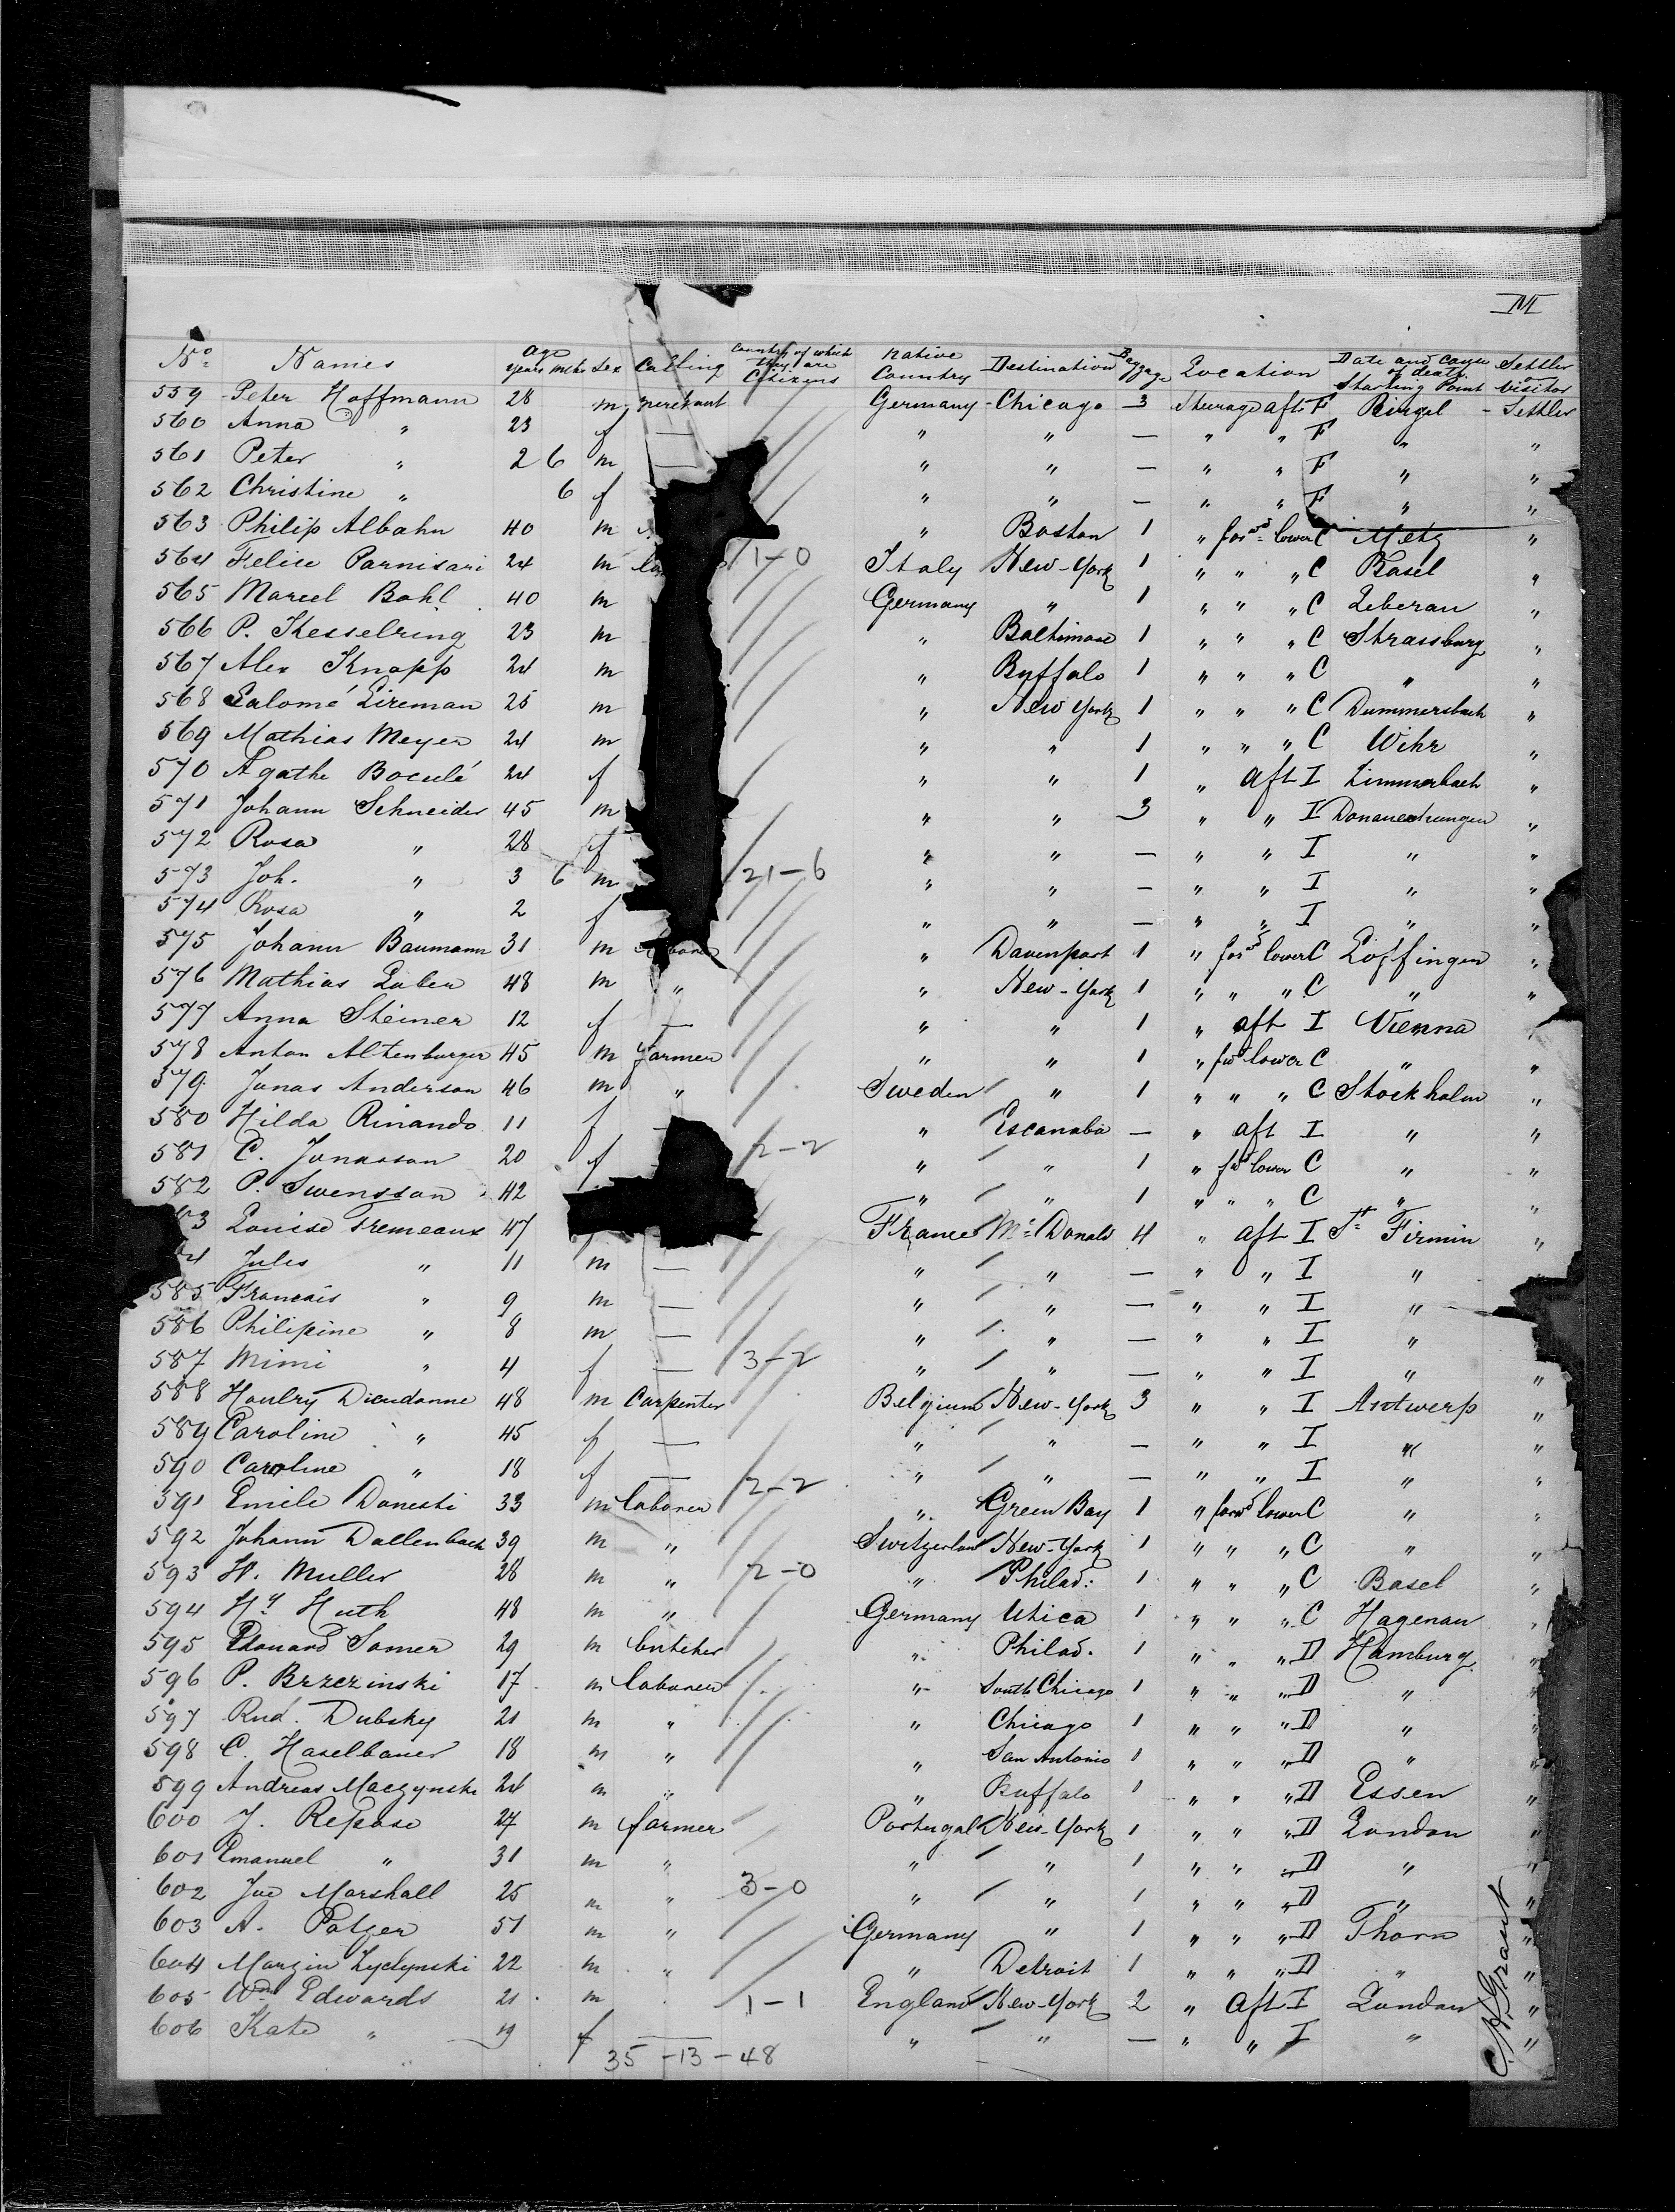 III
No. Names Age years mths Sex Calling Country of which they are Citizens Native Country Destination Baggage Location Date and cause of death. Starting Point Settler or Visitor
559 Peter Hoffmann 28 m merchant Germany - Chicago - 3 Steerage aft F - Settler
560 Anna " 23 f — " " — " " F " "
561 Peter " 2 6 m — " " — " " F " "
562 Christine " 6 f " " — " " F " "
563 Philip Albahn 40 m " Boston 1 " forwd lower C Metz "
564 Felice Parnisari 24 m 1-0 Italy New-York 1 " " " C Basel "
565 Marcel Bohl 40 m Germany " 1 " " " C Leberau "
566 P. Kesselring 23 m " Baltimore 1 " " " C Strassburg "
567 Alex Knapp 24 m " Buffalo 1 " " " C " "
568 Salomé Eireman 25 m " New York 1 " " " C Dummersbach "
569 Mathias Meyer 24 m " " 1 " " " C Wihr "
570 Agathe Boculé 24 f " " 1 " aft I Zimmerbach "
571 Johann Schneider 45 m " " 3 " " I "
572 Rosa " 28 f " " — " " I " "
573 Joh. " 3 6 m 21-6 " " — " " I " "
574 Rosa " 2 f " " — " " I " "
575 Johann Baumann 31 m " Davenport 1 " forwd lower C Löffingen "
576 Mathias 48 m " " New-York 1 " " " C " "
577 Anna Steiner 12 f — " " 1 " aft I Vienna "
578 Anton Altenburger 45 m farmer " " 1 " fwd lower C " "
579 Jonas Anderson 46 m " Sweden " 1 " " " C Stockholm "
580 Hilda Rinando 11 f " Escanaba — " aft I " "
581 C. Jonasson 20 f 2-2 " " 1 " fwd lower C " "
582 P. Swensson 42 " " 1 " " " C " "
3 Louise Fremeaux 47 France Mc Donald 4 " aft I St Firmin "
4 Jules " 11 m — " " — " " I " "
585 Francais " 9 m — " " — " " I " "
586 Philipine " 8 m — " " — " " I " "
587 Mimi " 4 f — 3-2 " " — " " I " "
588 Houlry Dieudonne 48 m Carpenter Belgium New-York 3 " " I Antwerp "
589 Caroline " 45 f — " " — " " I " "
590 Caroline " 18 f — 2-2 " " — " " I " "
591 Emile Doneski 33 m laborer " Green Bay 1 " forwd lower C " "
592 Johann Dallenbach 39 m " Switzerlan New-York 1 " " " C " "
593 H. Muller 28 m " 2-0 " Philad: 1 " " " C Basel "
594 Hy Huth 48 m " Germany Utica 1 " " " C Hagenau "
595 Edouard Somer 29 m butcher " Philad. 1 " " " D Hamburg "
596 P. Brzezinski 17 m laborer " South Chicago 1 " " " D " "
597 Rud. Dubsky 21 m " " Chicago 1 " " " D " "
598 C. Haselbauer 18 m " " San Antonio 1 " " " D " "
599 Andreas Maczynski 24 m " " Buffalo 1 " " " D Essen "
600 J. Repose 27 m farmer Portugal New-York 1 " " " D London "
601 Emanuel " 31 m " " " 1 " " " D " "
602 Joe Marshall 25 m " 3-0 " " 1 " " " D " "
603 A. Patzer 51 m " Germany " 1 " " " D Thorn "
604 Marzin Zyclynski 22 m " " Detroit 1 " " " D " "
605 Wm Edwards 21 m 1-1 England New-York 2 " Aft I London "
606 Kate " 19 f — " " — " " I " "
35-13-48
Grant